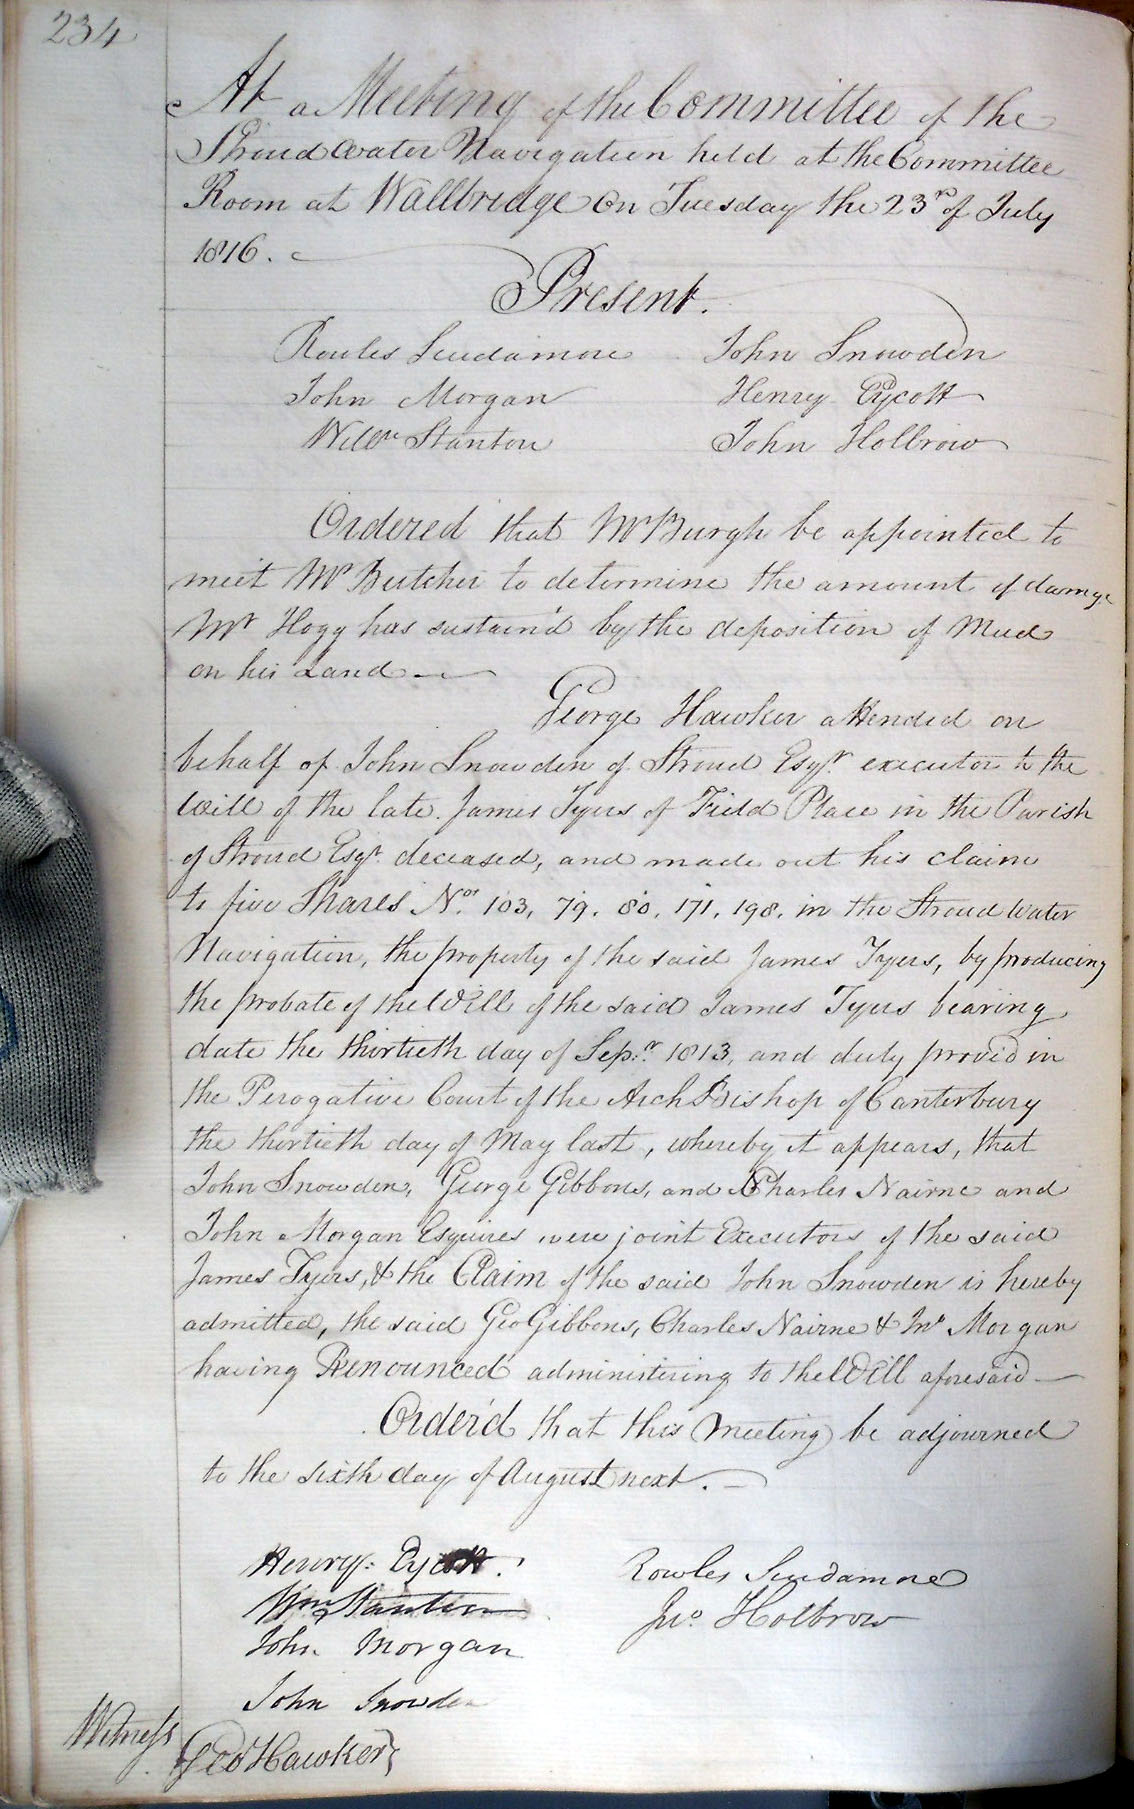 234
At a Meeting of the Committee of the
Stroudwater Navigation held at the Committee
Room at Wallbridge on Tuesday the 23rd of July
1816.
Present.
Rowles Scudamore John Snowden
John Morgan Henry Eycott
Willm Stanton John Holbrow
Ordered that Mr Burgh be appointed to
meet Mr Butcher to determine the amount of damage
Mr Hogg has sustain'd by the deposition of Mud
on his Land —
George Hawker attended on
behalf of John Snowden of Stroud Esqr. executor to the
Will of the late James Tyers of Field Place in the Parish
of Stroud Esqr. deceased, and made out his claim
to five Shares Nos. 103, 79, 80, 171, 198, in the Stroudwater
Navigation, the property of the said James Tyers, by producing
the probate of the Will of the said James Tyers bearing
date the thirtieth day of Sepr. 1813, and duly proved in
the Perogative Court of the Arch Bishop of Canterbury
the thirtieth day of May last, whereby it appears, that
John Snowden, George Gibbons, and Charles Nairne and
John Morgan Esquires were joint Executors of the said
James Tyers, & the Claim of the said John Snowden is hereby
admitted, the said Geo Gibbons, Charles Nairne & Jno Morgan
having Renounced administering to the Will aforesaid —
Order'd that this Meeting be adjourned
to the sixth day of August next. —
Henry Eycott. Rowles Scudamore
Wm Stanton Jno. Holbrow
John Morgan
John Snowden
Witness
Geo Hawker